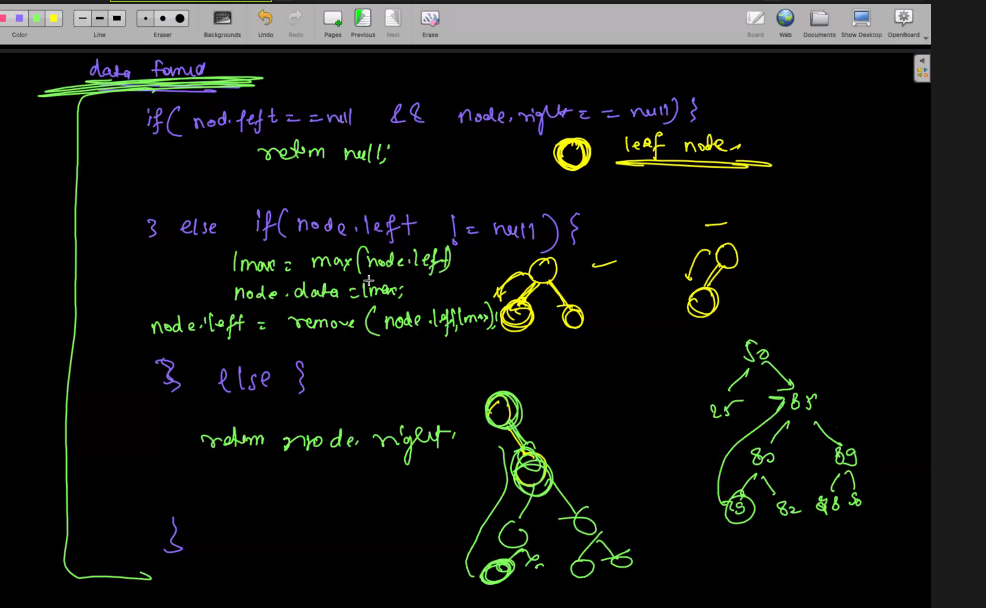 Color Line Eraser Backgrounds Undo Redo Pages Previous Next Erase Board Web Documents Show Desktop OpenBoard
data found
if( nod.left = = null && node.right = = null) {
return null;
leaf node.
} else if( node.left != null) {
lmax = max(node.left)
node.data = lmax;
node.left = remove (node.left, lmax);
} else {
return node.right.
}
50
25 85
80 89
82